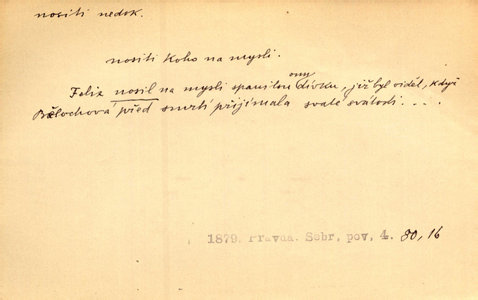 nositi nedok.
nositi koho na mysli.
Felix nosil na mysli spanilou onu dívku, již byl viděl, když
Bělochova před smrtí přijímala svaté svátosti. . . .
1879. Pravda. Sebr. pov. 4. 80, 16